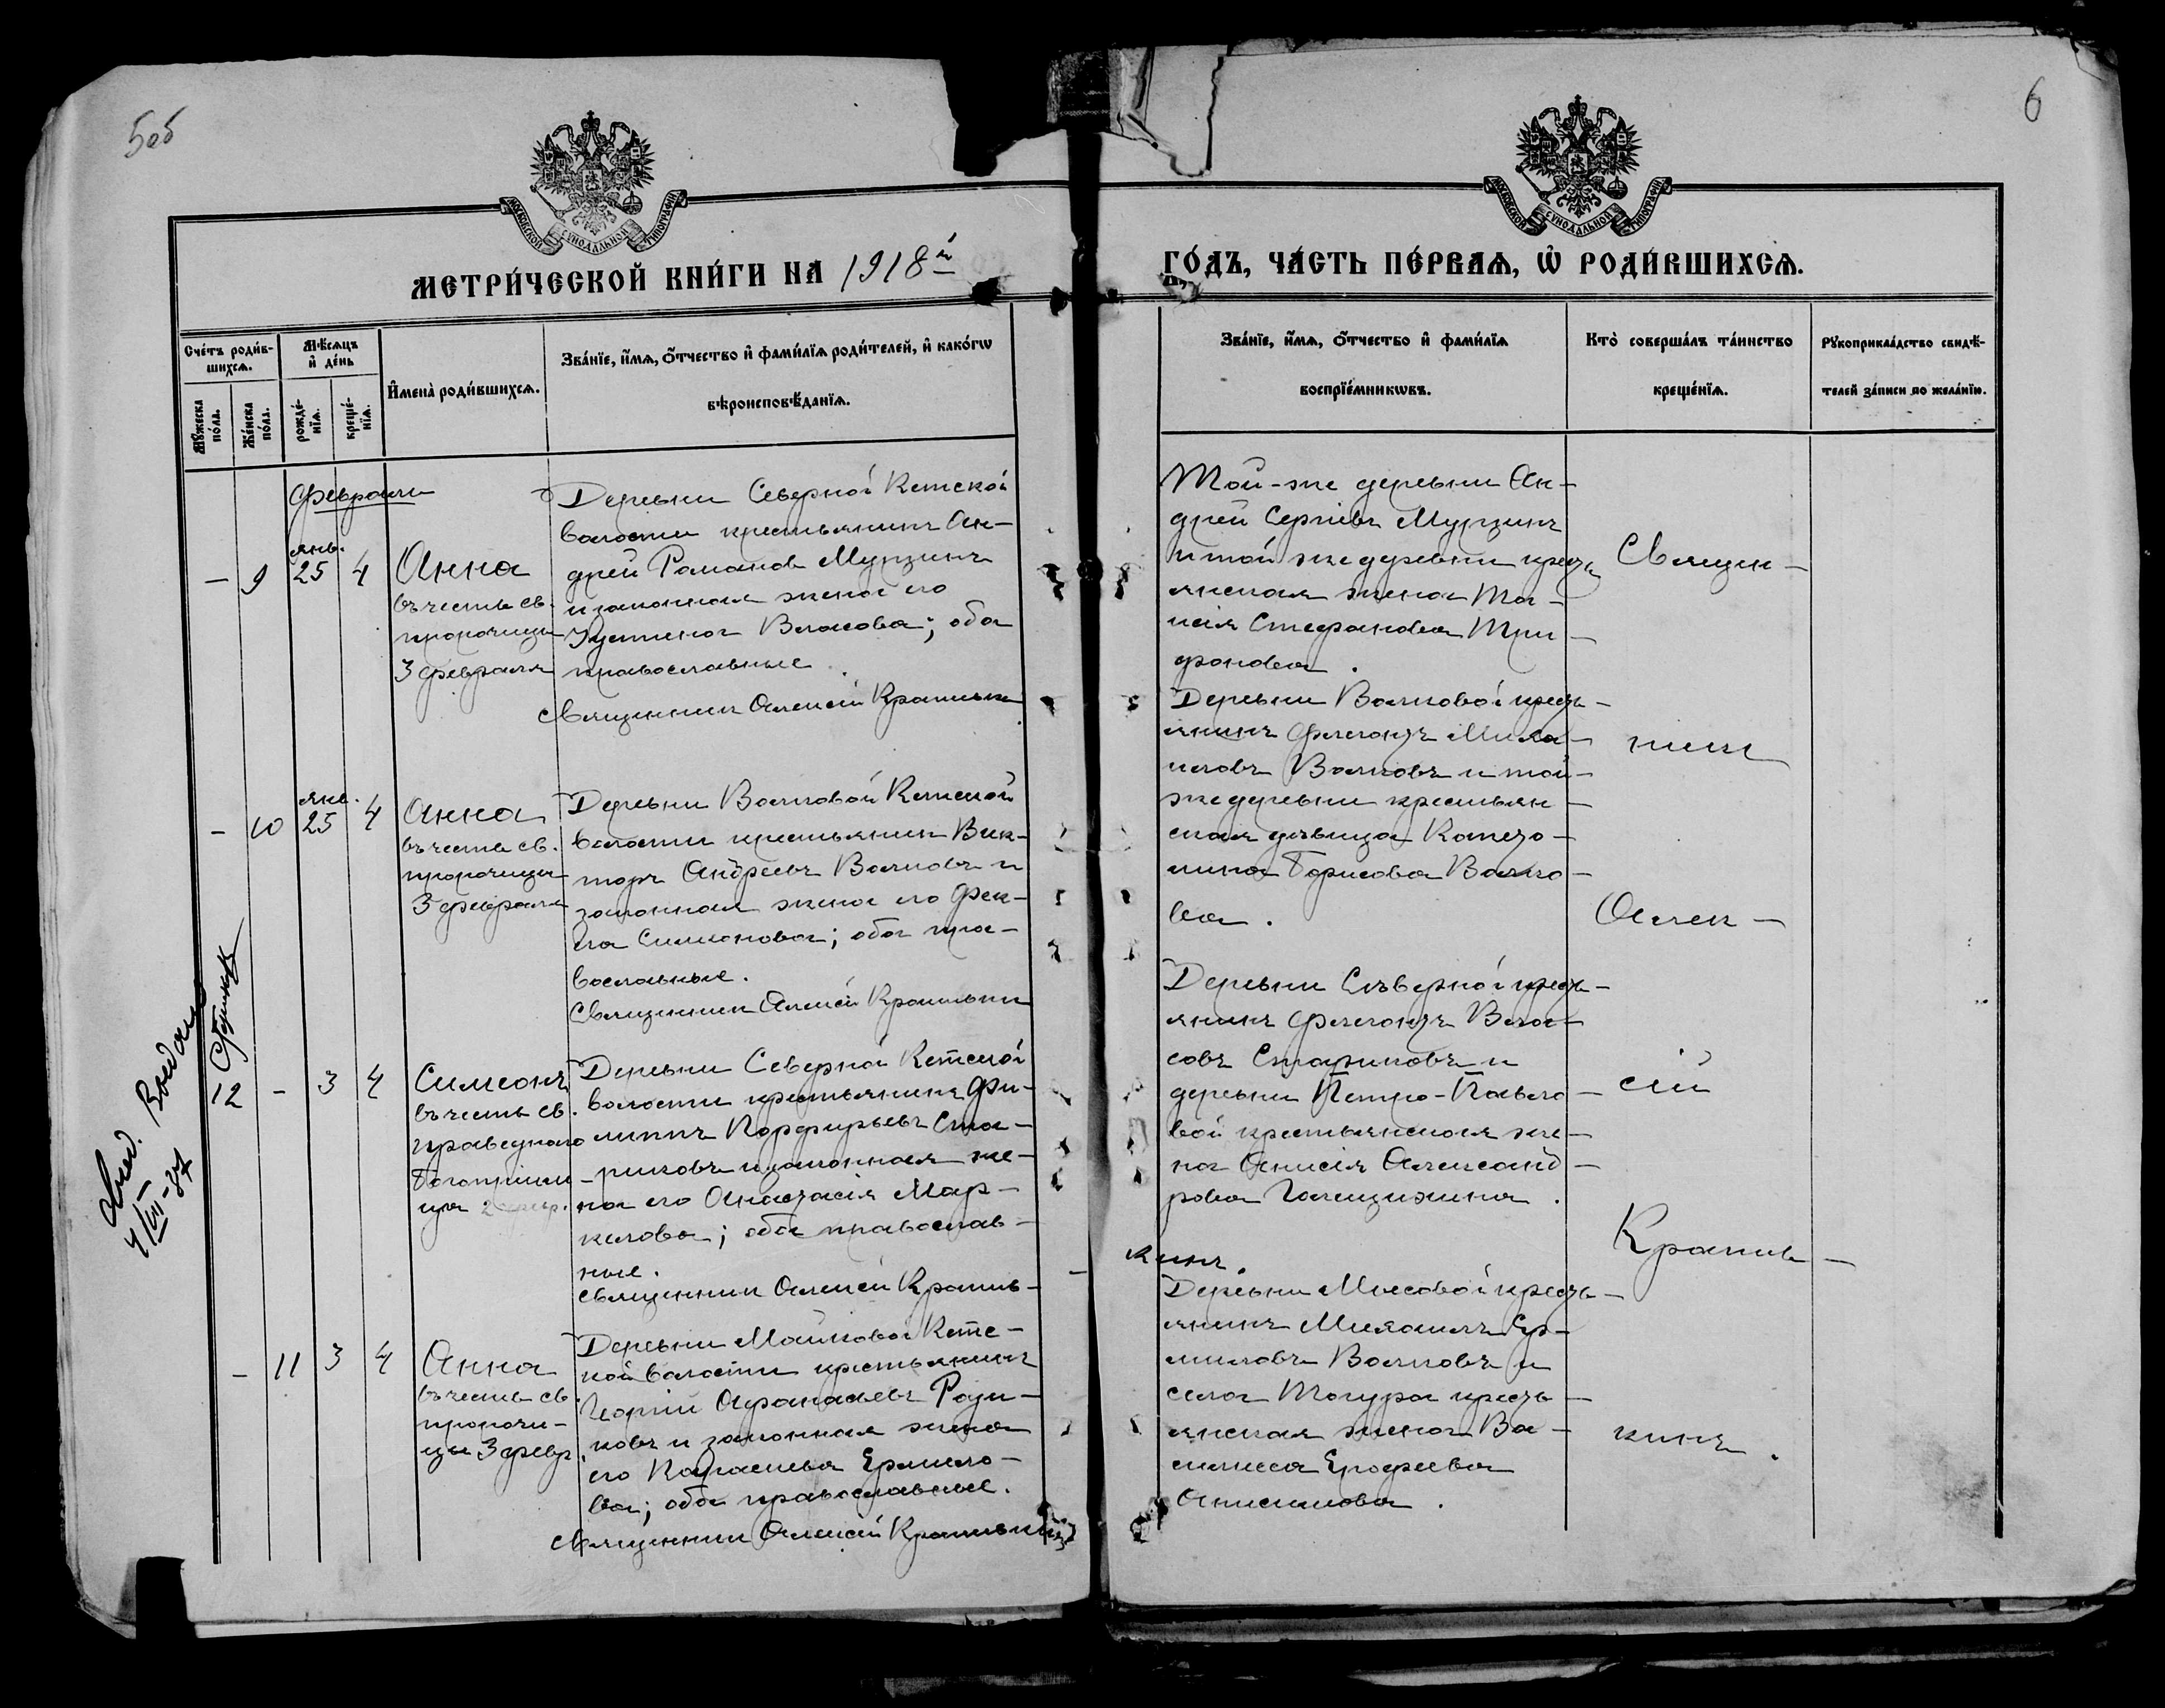 5об
6
МОСКОВСКОЙ СѴНОДАЛЬНОЙ ТИПОГРАФІИ
МОСКОВСКОЙ СѴНОДАЛЬНОЙ ТИПОГРАФІИ
МЕТРИ́ЧЕСКОЙ КНИ́ГИ НА 1918й
ГО́ДЪ, ЧА́СТЬ ПЕ́РВАЯ, Ѿ РОДИ́ВШИХСЯ.
Сче́тъ роди́в-
шихся.
Мꙋ́жеска
по́ла.
Же́нска
по́ла.
Мѣ́сяцъ
и҆ де́нь
рожде́-
нїя.
креще́-
нїя.
И҆мена̀ роди́вшихся.
Зва́нїе, и҆́мя, ѻ҆́тчество и҆ фами́лїя роди́телей, и҆ како́гѡ
вѣроисповѣ́данїя.
Зва́нїе, и҆́мя, ѻ҆́тчество и҆ фами́лїя
воспрїе́мникѡвъ.
Кто̀ соверша́лъ та́инство
креще́нїя.
Рꙋкоприкла́дство свидѣ́-
телей за́писи по жела́нїю.
Февраль
- 9
янв.
25 4
Анна
въ честь св.
пророчицы
3 февраля
Деревни Северной Кетской
волости крестьянинъ Ан-
дрей Романов Мурзинъ
и законная жена его
Устинья Власова; оба
православные.
Священник Алексей Крапивкин
Той-же деревни Ан-
дрей Сергѣевъ Мурзинъ
и той же деревни крест
янская жена Та-
исія Стефановна Три-
фонова.
- 10
янв.
25 4
Анна
въ честь св.
пророчицы
3 февраля
Деревни Волковой Кетской
волости крестьянин Вик-
торъ Андреевъ Волковъ и
законная жена его Фек-
ла Симионова; оба пра-
вославные.
Священник Алексей Крапивкин
Деревни Волковой крест-
янинъ Флегонтъ Миха-
иловъ Волковъ и той-
же деревни крестьян-
ская дѣвица Катери-
нина Борисова Волко-
ва.
12 - 3 4
Симеонъ
въ честь св.
праведного
Богоприим
ца 2 февр.
Деревни Северной Кетской
волости крестьянинъ Фи-
липпъ Порфирьевъ Ста-
риковъ и законная же-
на его Анастасія Мар-
келова; оба православ-
ные.
Священник Алексей Крапив-
кинъ.
Деревни Сѣверной крест-
янинъ Флегонтъ Вла-
совъ Стариковъ и
деревни Петро-Павло-
вой крестьянская же-
на Анисія Александ-
рова Голещихина.
- 11 3 4
Анна
въ честь св.
пророчи-
цы 3 февр.
Деревни Майковой Кетс-
кой волости крестьянинъ
Георгій Афанасьевъ Роди-
ковъ и законная жена
его Параскева Ермило-
ва; оба православные.
Священник Алексей Крапивкинъ
Деревни Мысовой крест-
янинъ Михаилъ Ер-
миловъ Волковъ и
села Тогура крест-
янская жена Ва-
силиса Ерофеева
Анисимова.
Священ-
ник
Алек-
сій
Крапив-
кинъ.
Стариков
Выдано
4/VII-37